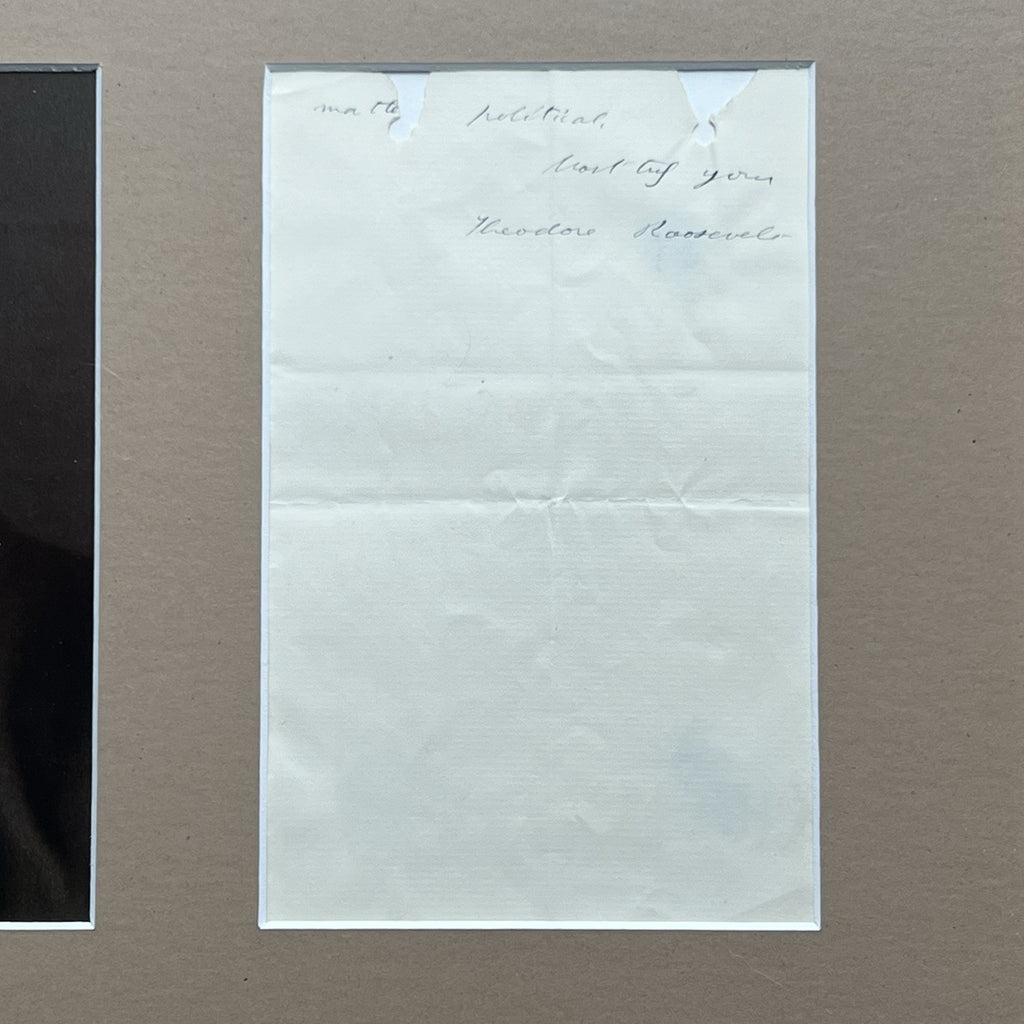 matte political.
Most try yours
Theodore Roosevelt